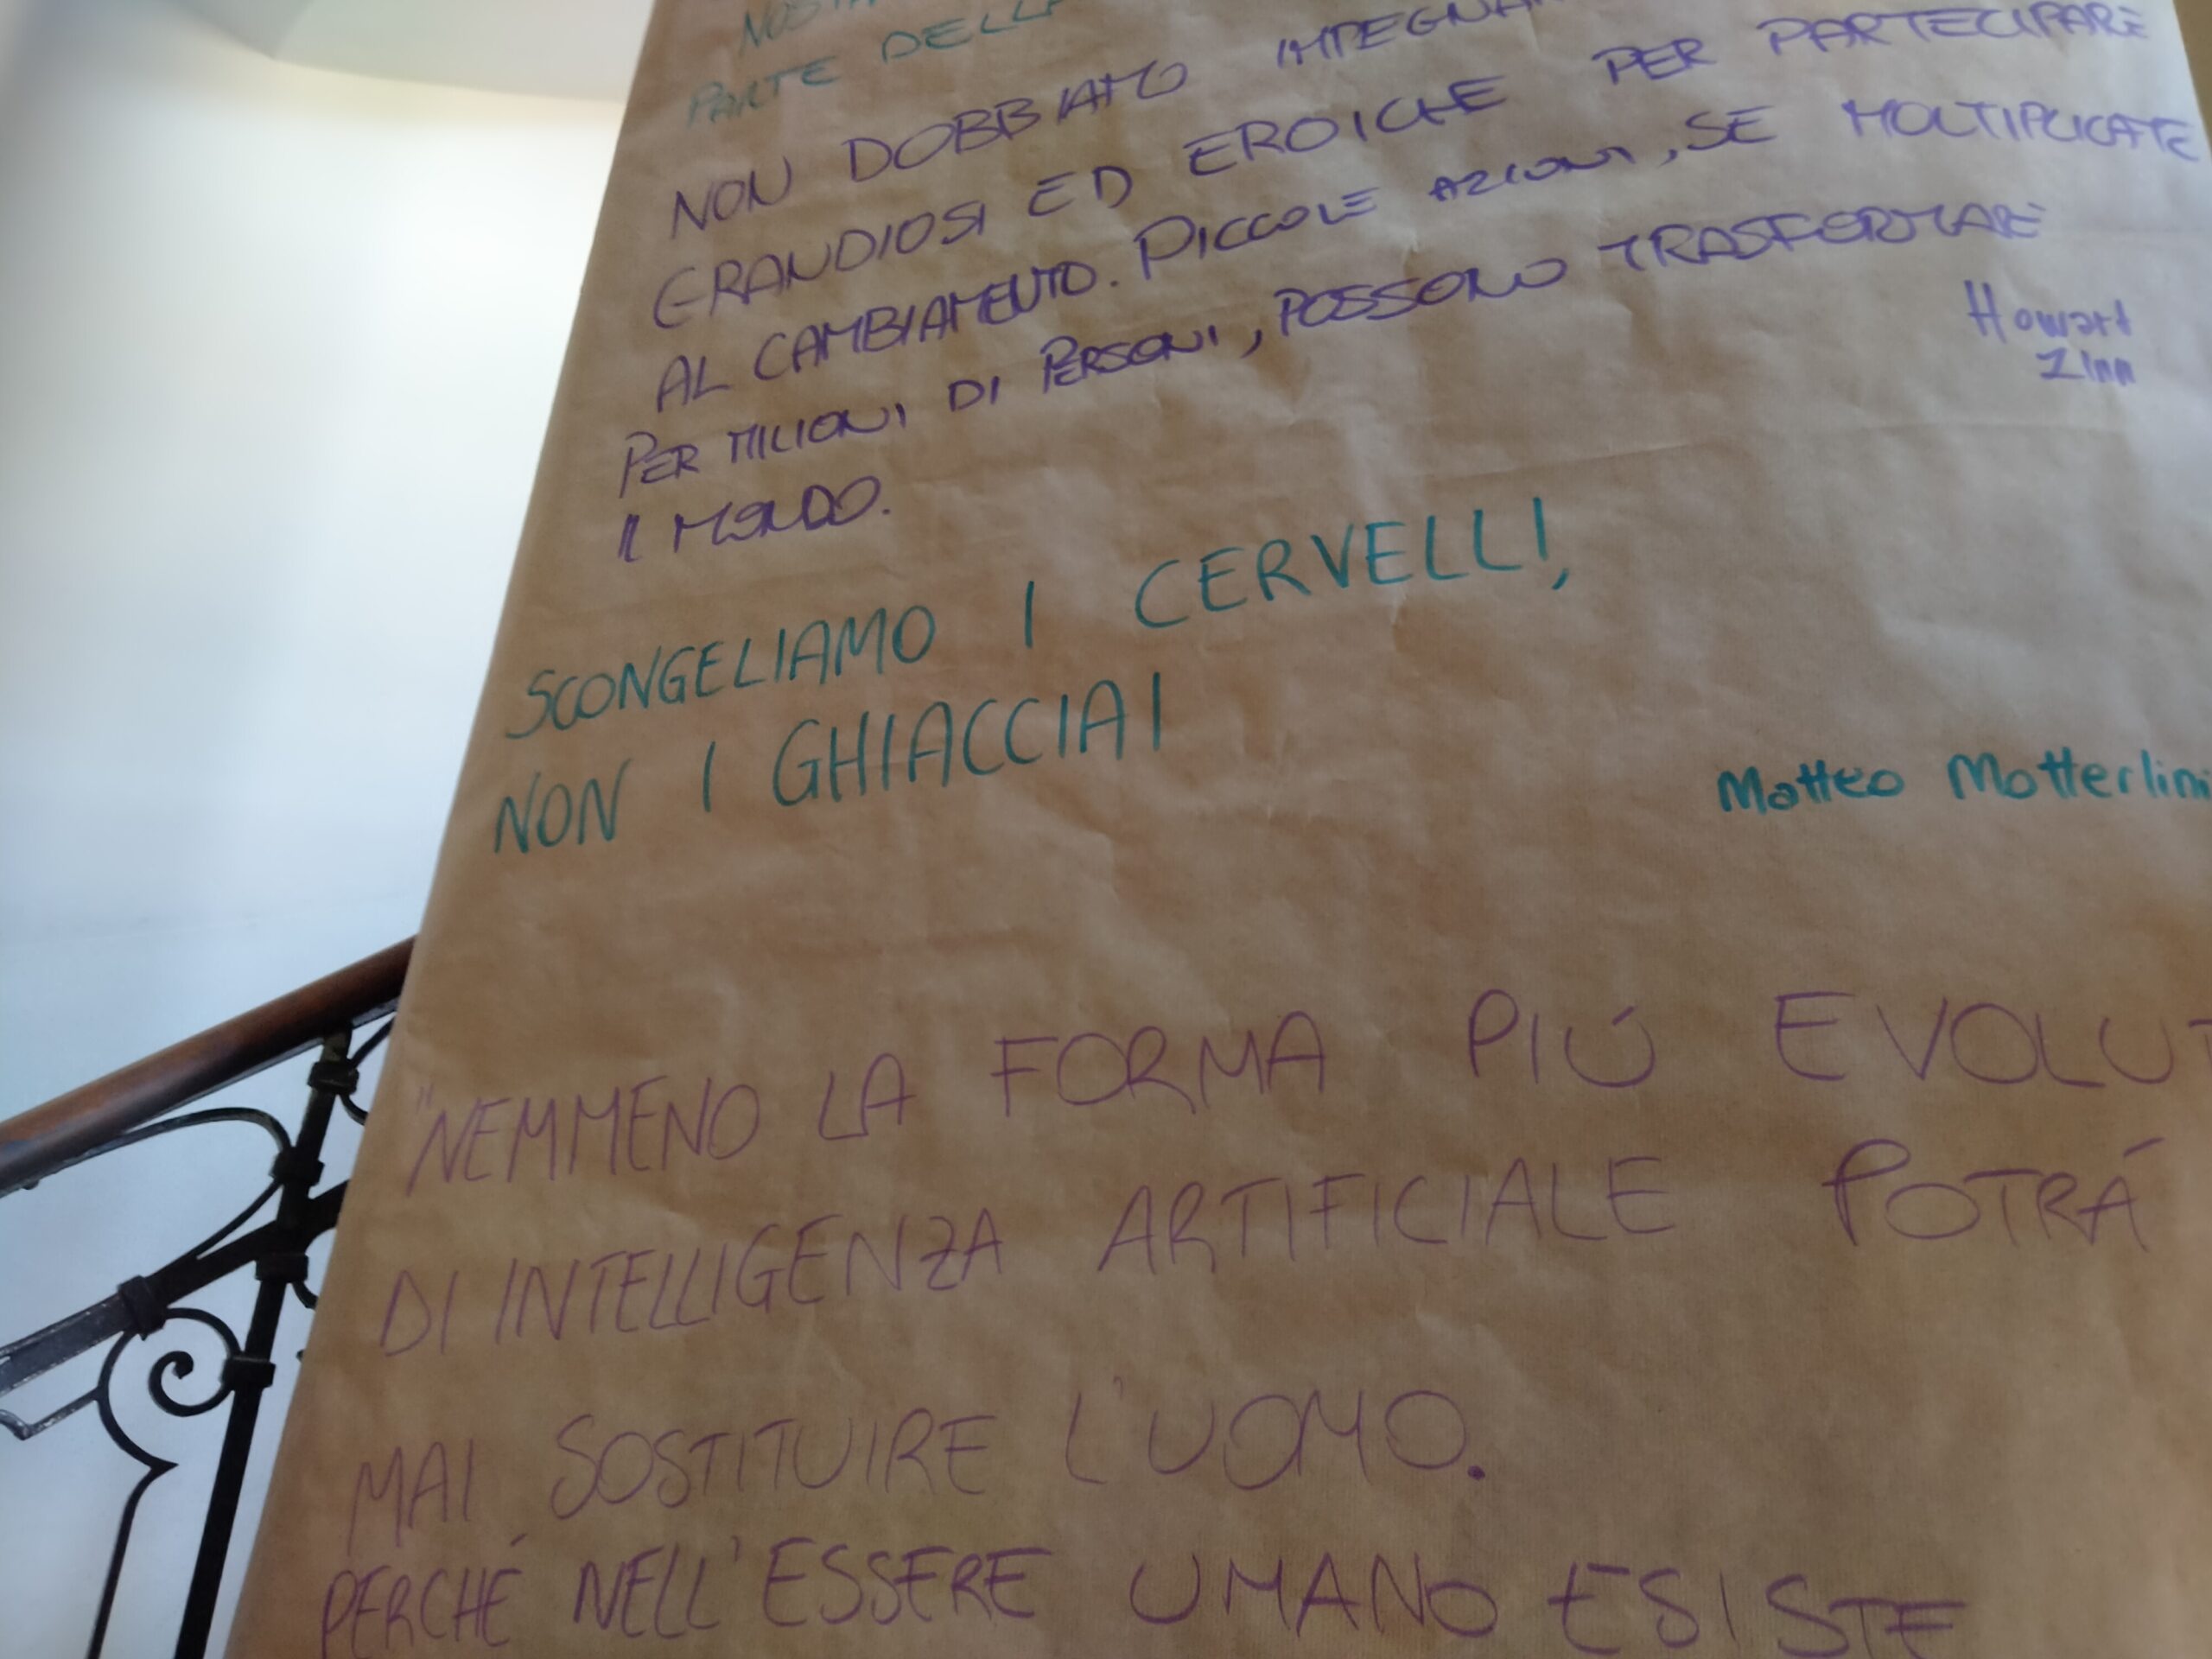 PARTE DELLA
NON DOBBIAMO
GRANDIOSI ED EROICHE PER PARTECIPARE
AL CAMBIAMENTO. PICCOLE AZIONI, SE MOLTIPLICATE
PER MILIONI DI PERSONI, POSSONO TRASFORMARE
IL MONDO.
Howart
Zinn
SCONGELIAMO I CERVELLI,
NON I GHIACCIAI
Matteo Motterlini
"NEMMENO LA FORMA PIÚ EVOLUT
DI INTELLIGENZA ARTIFICIALE POTRÁ
MAI SOSTITUIRE L'UOMO.
PERCHÉ NELL'ESSERE UMANO ESISTE